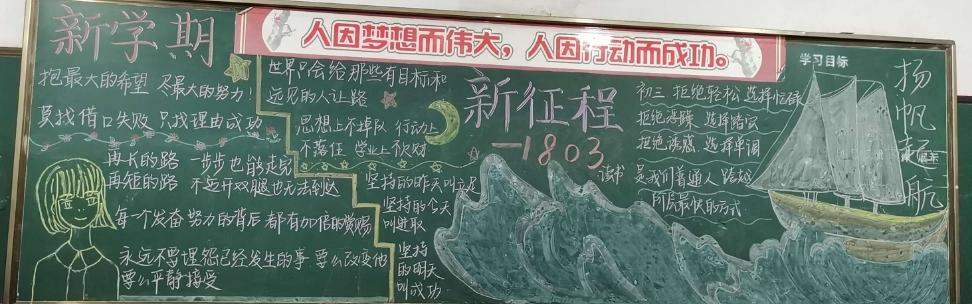 新学期
人因梦想而伟大，人因行动而成功。
抱最大的希望 尽最大的努力！
莫找借口失败 只找理由成功
再长的路 一步步也能走完
再短的路 不迈开双腿也无法到达
每一个发奋努力的背后 都有加倍的赏赐
永远不要埋怨已经发生的事 要么改变他
要么平静接受
世界只会给那些有目标和
远见的人让路
思想上不掉队 行动上
不落伍 学业上不欠对
坚持的昨天叫立足
坚持的今天
叫进取
坚持
的明天
叫成功
新征程
-1803
学习目标
初三 拒绝轻松 选择忙碌
拒绝浮躁 选择踏实
拒绝诱惑 选择单调
读书 是我们普通人 跨越
阶层最快的方式
扬帆起航
展示